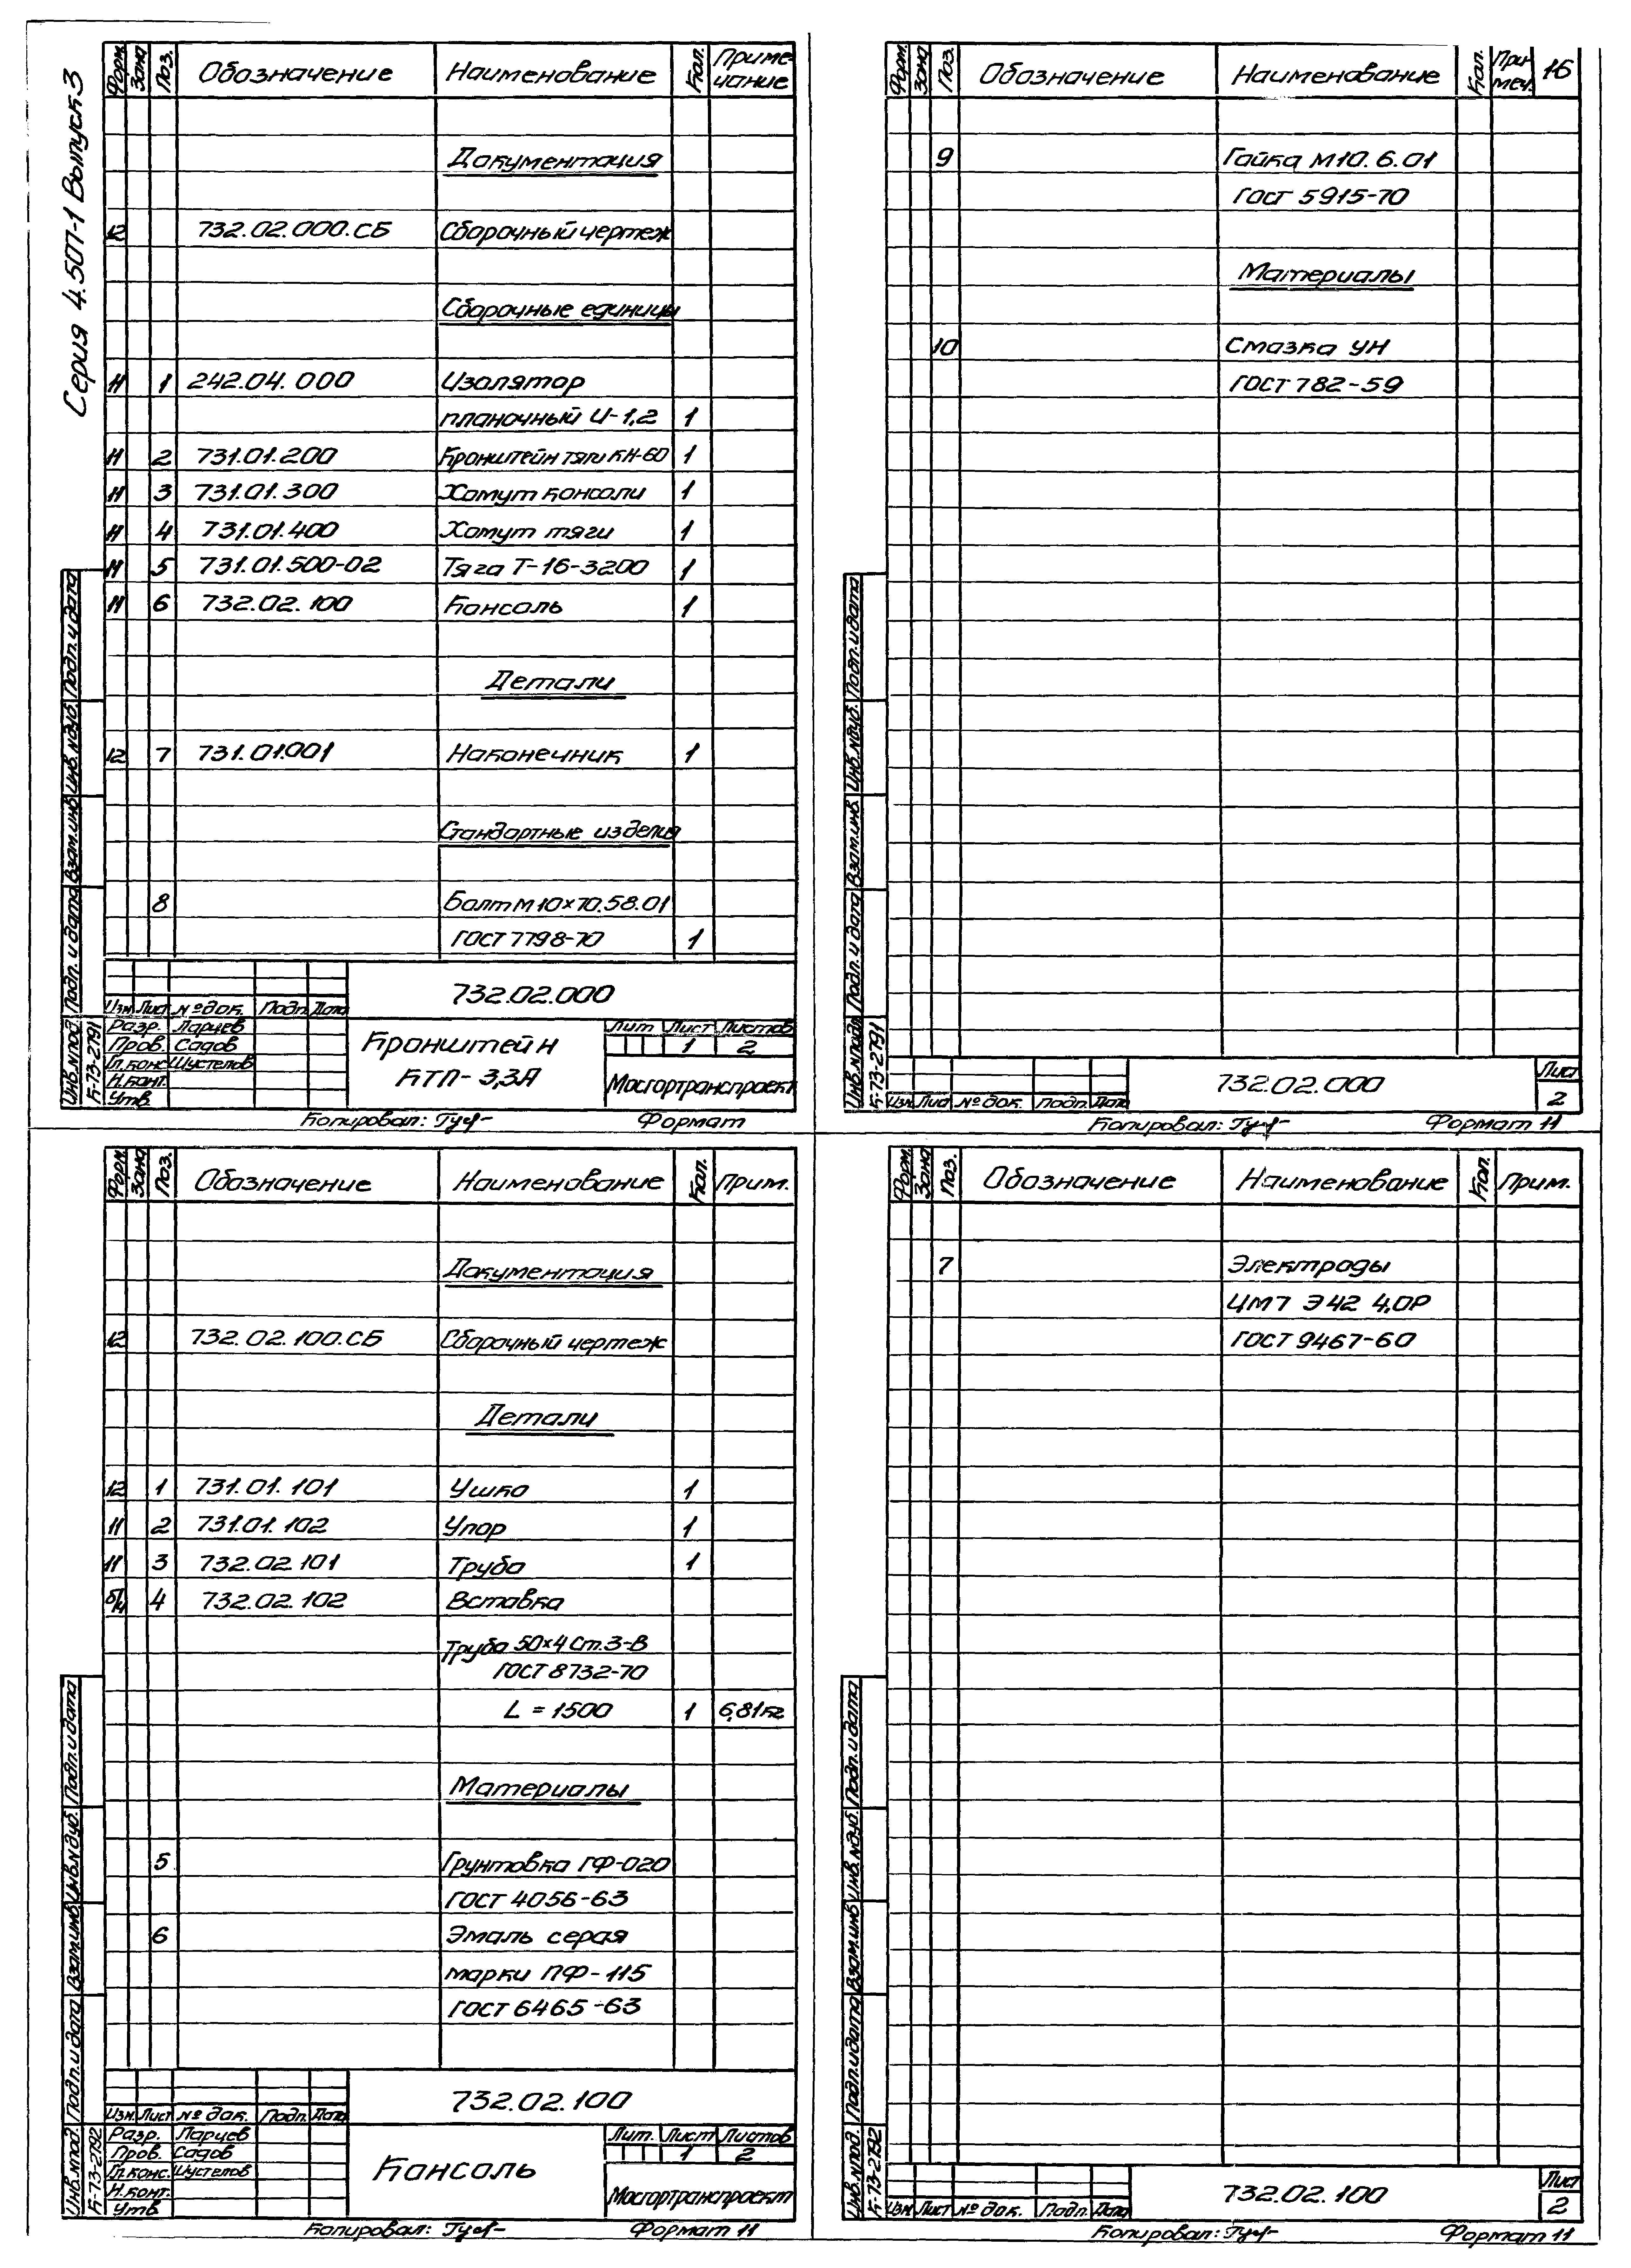 Серия 4.507-1 Выпуск 3
Форм. Зона Поз. Обозначение Наименование Кол. Примечание
Документация
12 732.02.000.СБ Сборочный чертеж
Сборочные единицы
11 1 242.04.000 Изолятор
планочный И-1,2 1
11 2 731.01.200 Кронштейн тяги КН-60 1
11 3 731.01.300 Хомут консоли 1
11 4 731.01.400 Хомут тяги 1
11 5 731.01.500-02 Тяга Т-16-3200 1
11 6 732.02.100 Консоль 1
Детали
12 7 731.01.001 Наконечник 1
Стандартные изделия
8 Болт М10×70.58.01
ГОСТ 7798-70 1
732.02.000
Изм. Лист № док. Подп. Дата
Разр. Ларчев
Пров. Садов
Гл.конс. Шустелов
Н.конт.
Утв.
Кронштейн
КТП-3,3А
Лит Лист Листов
1 2
Мосгортранспроект
Инв.№подл. Подп. и дата Взам.инв. Инв.№дуб. Подп. и дата
К-73-2791
Копировал:
Формат
Форм. Зона Поз. Обозначение Наименование Кол. При меч. 16
9 Гайка М10.6.01
ГОСТ 5915-70
Материалы
10 Смазка УН
ГОСТ 782-59
Инв.№подл. Подп. и дата Взам.инв. Инв.№дуб. Подп. и дата
К-73-2791
Изм. Лист № док. Подп. Дата
732.02.000
Лист
2
Копировал:
Формат 11
Форм. Зона Поз. Обозначение Наименование Кол. Прим.
Документация
12 732.02.100.СБ Сборочный чертеж
Детали
12 1 731.01.101 Ушко 1
11 2 731.01.102 Упор 1
11 3 732.02.101 Труба 1
б/ч 4 732.02.102 Вставка
Труба 50×4 Ст.3-В
ГОСТ 8732-70
L = 1500 1 6,81кг
Материалы
5 Грунтовка ГФ-020
ГОСТ 4056-63
6 Эмаль серая
марки ПФ-115
ГОСТ 6465-63
732.02.100
Изм. Лист № док. Подп. Дата
Разр. Ларчев
Пров. Садов
Гл.конс. Шустелов
Н.конт.
Утв
Консоль
Лит. Лист Листов
1 2
Мосгортранспроект
Инв.№подл. Подп. и дата Взам.инв. Инв.№дуб. Подп. и дата
К-73-2792
Копировал:
Формат 11
Форм. Зона Поз. Обозначение Наименование Кол. Прим.
7 Электроды
ЦМ7 Э42 4,0Р
ГОСТ 9467-60
Инв.№подл. Подп. и дата Взам.инв. Инв.№дуб. Подп. и дата
К-73-2792
Изм. Лист № док. Подп. Дата
732.02.100
Лист
2
Копировал:
Формат 11